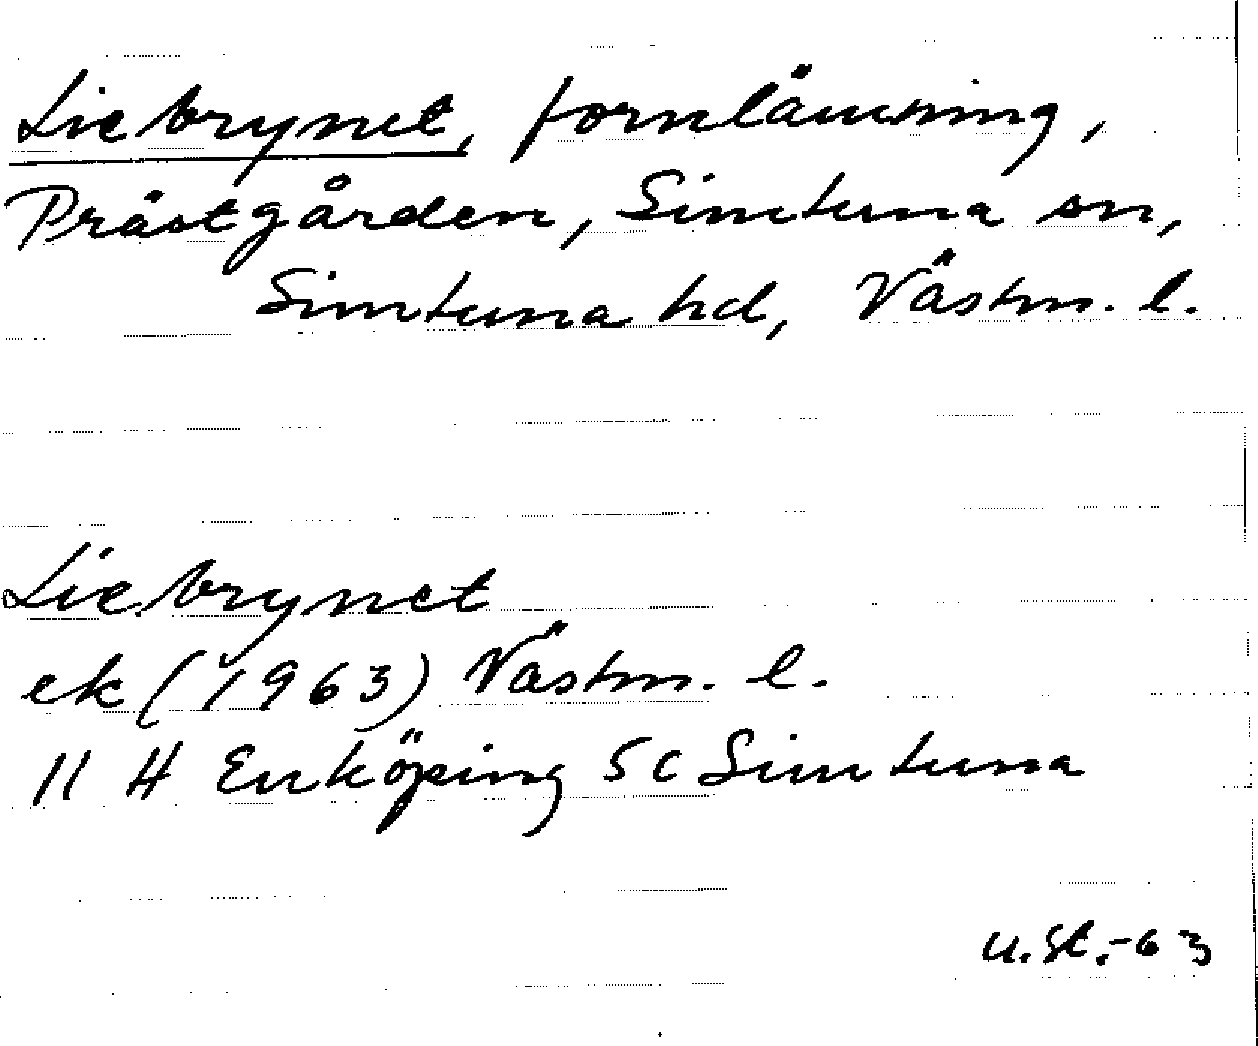 Liebrynet, fornlämning,
Prästgården, Simtuna sn,
Simtuna hd, Västm. l.
Liebrynet
ek (1963) Västm. l.
11 H Enköping 5 c Simtuna
U.St.-63